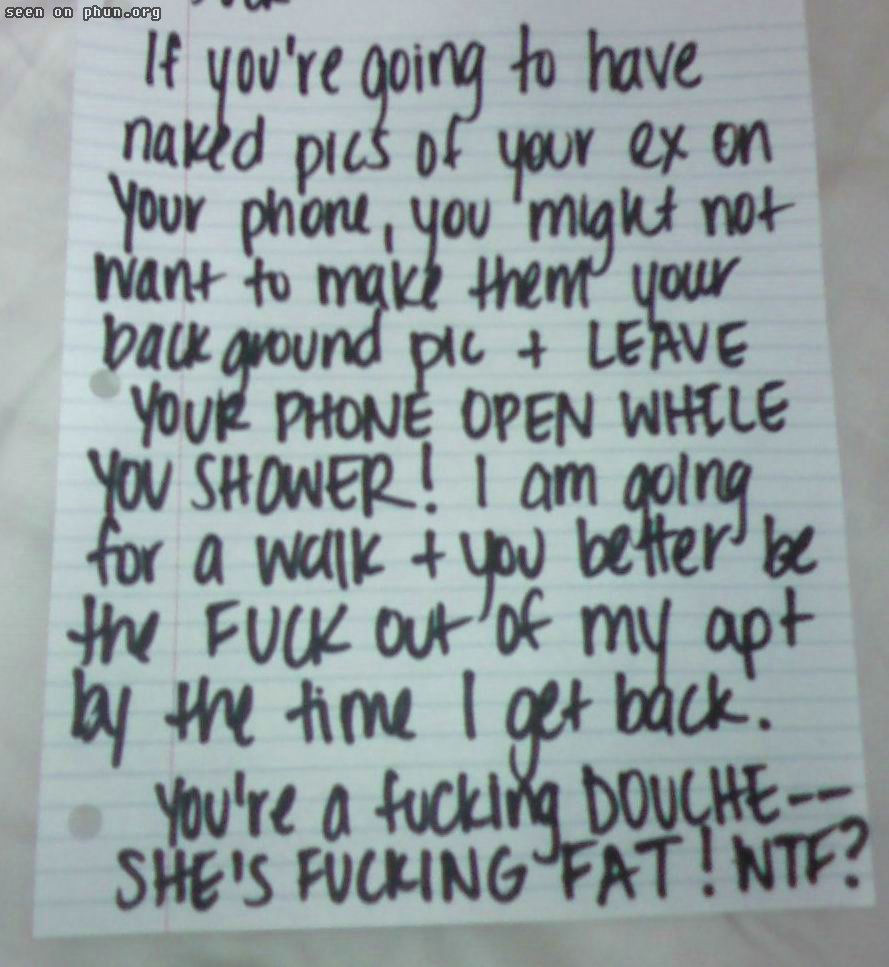 seen on phun.org
If you're going to have
naked pics of your ex on
your phone, you might not
want to make them your
background pic + LEAVE
YOUR PHONE OPEN WHILE
YOU SHOWER! I am going
for a walk + you better be
the FUCK out of my apt
by the time I get back.
You're a fucking DOUCHE--
SHE'S FUCKING FAT! WTF?